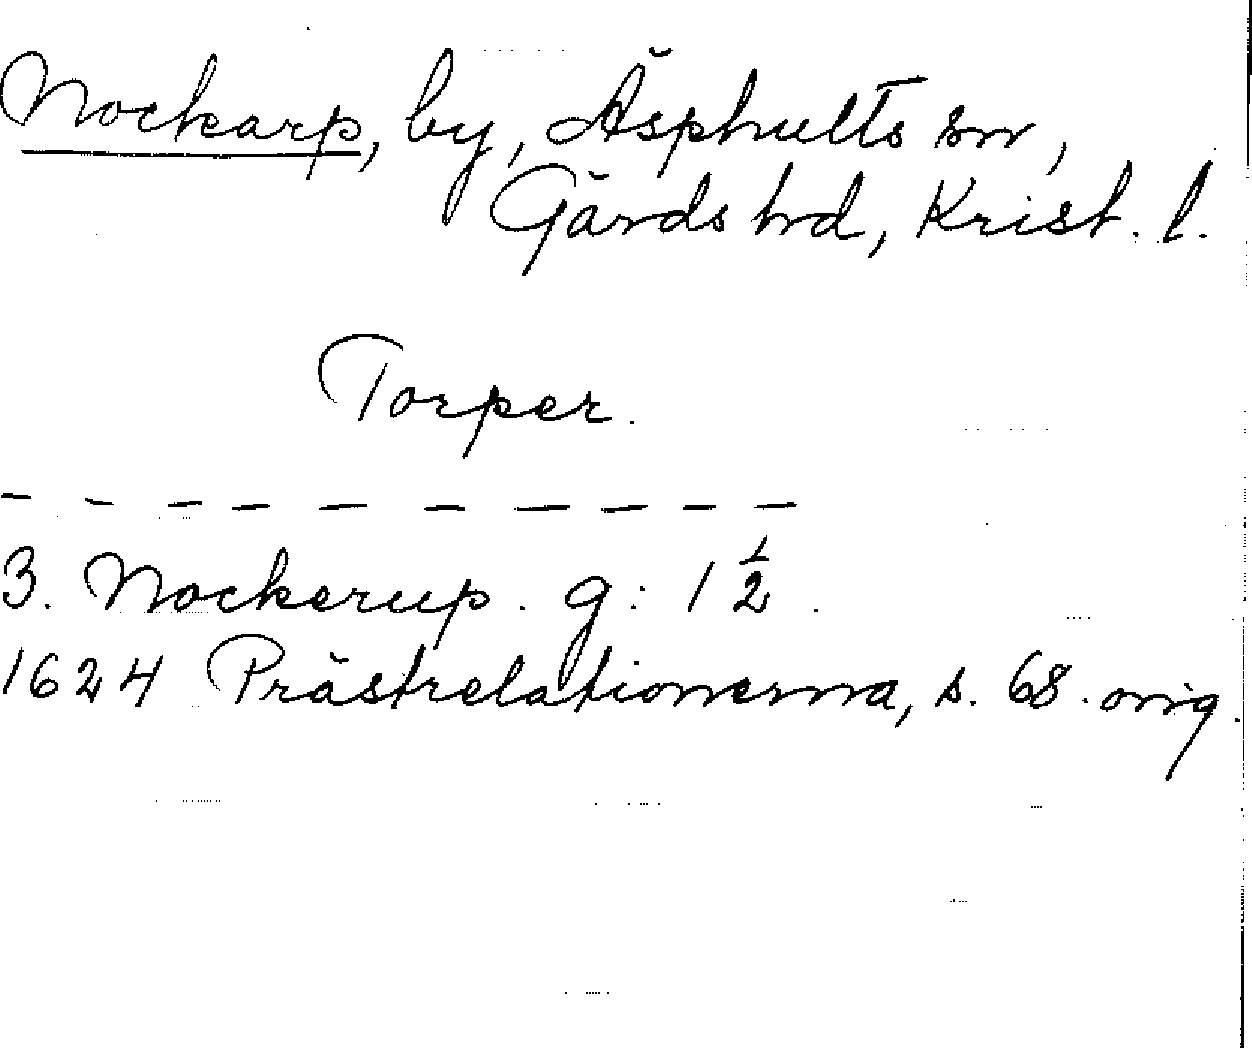 Nockarp, by, Äsphults sn,
Gärds hd, Krist. l.
Torper.
— — — — — — — — — —
3. Nockerup. g: 1 1/2.
1624 Prästrelationerna, s. 68. orig.